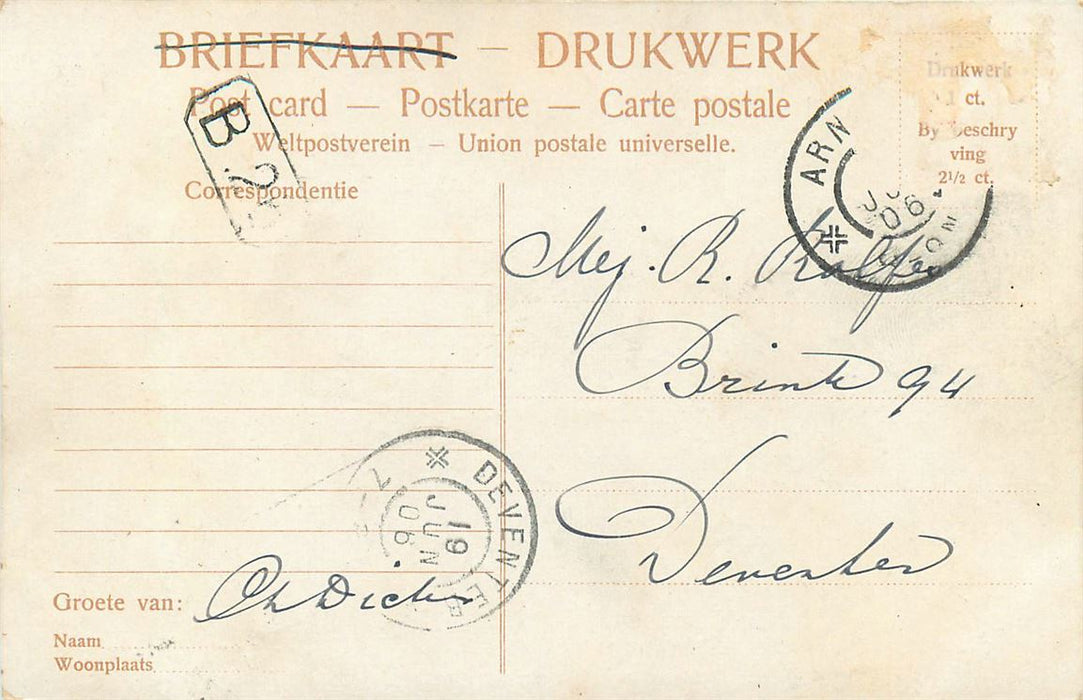 BRIEFKAART – DRUKWERK
Post card — Postkarte — Carte postale
Weltpostverein – Union postale universelle.
Correspondentie
B 2
Drukwerk
1 ct.
By beschry
ving
2½ ct.
ARN
06
Mej. R. Kolff
Brink 94
Deventer
DEVENTER
19
JUN
06
Groete van:
Naam
Woonplaats